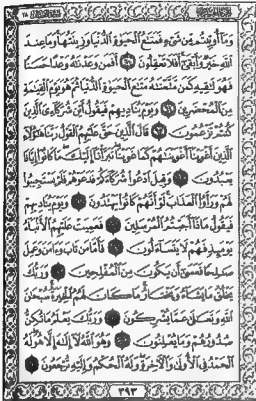 وَمَآ أُوتِيتُم مِّن شَىْءٍ فَمَتَٰعُ ٱلْحَيَوٰةِ ٱلدُّنْيَا وَزِينَتُهَا وَمَا عِندَ
ٱللَّهِ خَيْرٌ وَأَبْقَىٰٓ أَفَلَا تَعْقِلُونَ أَفَمَن وَعَدْنَٰهُ وَعْدًا حَسَنًا
فَهُوَ لَٰقِيهِ كَمَن مَّتَّعْنَٰهُ مَتَٰعَ ٱلْحَيَوٰةِ ٱلدُّنْيَا ثُمَّ هُوَ يَوْمَ ٱلْقِيَٰمَةِ
مِنَ ٱلْمُحْضَرِينَ وَيَوْمَ يُنَادِيهِمْ فَيَقُولُ أَيْنَ شُرَكَآءِىَ ٱلَّذِينَ
كُنتُمْ تَزْعُمُونَ قَالَ ٱلَّذِينَ حَقَّ عَلَيْهِمُ ٱلْقَوْلُ رَبَّنَا هَٰٓؤُلَآءِ
ٱلَّذِينَ أَغْوَيْنَآ أَغْوَيْنَٰهُمْ كَمَا غَوَيْنَا تَبَرَّأْنَآ إِلَيْكَ مَا كَانُوٓا۟ إِيَّانَا
يَعْبُدُونَ وَقِيلَ ٱدْعُوا۟ شُرَكَآءَكُمْ فَدَعَوْهُمْ فَلَمْ يَسْتَجِيبُوا۟
لَهُمْ وَرَأَوُا۟ ٱلْعَذَابَ لَوْ أَنَّهُمْ كَانُوا۟ يَهْتَدُونَ وَيَوْمَ يُنَادِيهِمْ
فَيَقُولُ مَاذَآ أَجَبْتُمُ ٱلْمُرْسَلِينَ فَعَمِيَتْ عَلَيْهِمُ ٱلْأَنۢبَآءُ
يَوْمَئِذٍ فَهُمْ لَا يَتَسَآءَلُونَ فَأَمَّا مَن تَابَ وَءَامَنَ وَعَمِلَ
صَٰلِحًا فَعَسَىٰٓ أَن يَكُونَ مِنَ ٱلْمُفْلِحِينَ وَرَبُّكَ
يَخْلُقُ مَا يَشَآءُ وَيَخْتَارُ مَا كَانَ لَهُمُ ٱلْخِيَرَةُ سُبْحَٰنَ
ٱللَّهِ وَتَعَٰلَىٰ عَمَّا يُشْرِكُونَ وَرَبُّكَ يَعْلَمُ مَا تُكِنُّ
صُدُورُهُمْ وَمَا يُعْلِنُونَ وَهُوَ ٱللَّهُ لَآ إِلَٰهَ إِلَّا هُوَ لَهُ
ٱلْحَمْدُ فِى ٱلْأُولَىٰ وَٱلْءَاخِرَةِ وَلَهُ ٱلْحُكْمُ وَإِلَيْهِ تُرْجَعُونَ
٣٩٣